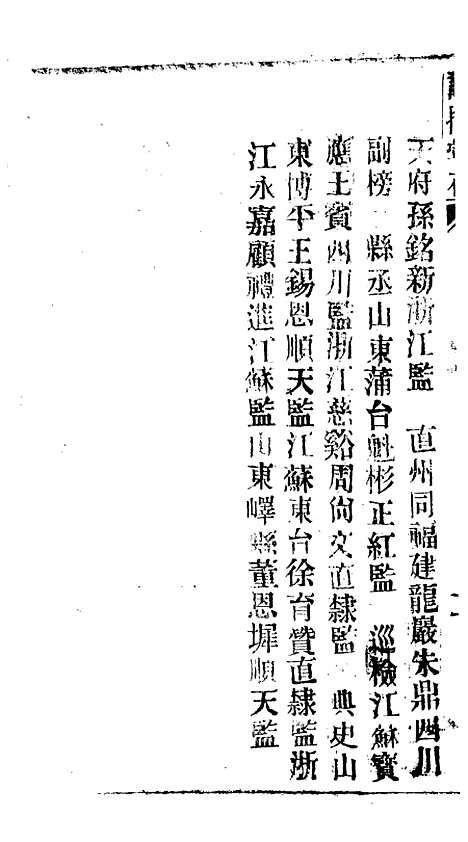 天府孫銘新浙江監　直州同福建龍巖朱鼎四川
副榜　縣丞山東蒲台魁彬正紅監　巡檢江蘇寶
應王賓四川監浙江慈谿周尙文直隸監　典史山
東博平王錫恩順天監江蘇東台徐育贊直隸監浙
江永嘉顧禮進江蘇監山東嶧縣董恩墀順天監